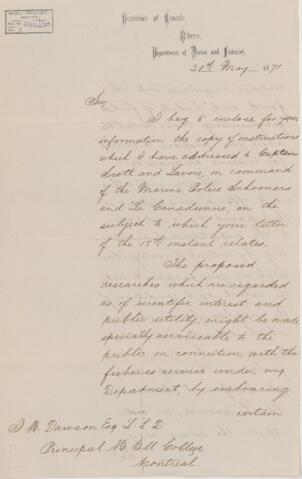 Dominion of Canada,
Ottawa,
Department of Marine and Fisheries,
20th May 1871
Sir,
I beg to enclose for your
information the copy of instructions
which I have addressed to Captains
Scott and Lavoie, in command
of the Marine Police Schooners
and "La Canadienne", on the
subject to which your letter
of the 15th instant relates.
The proposed
researches which are regarded
as of scientific interest and
public utility, might be made
specially serviceable to the
public in connection with the
fisheries service under my
Department, by embracing
certain
J. W. Dawson Esq LLD
Principal McGill College
Montreal.